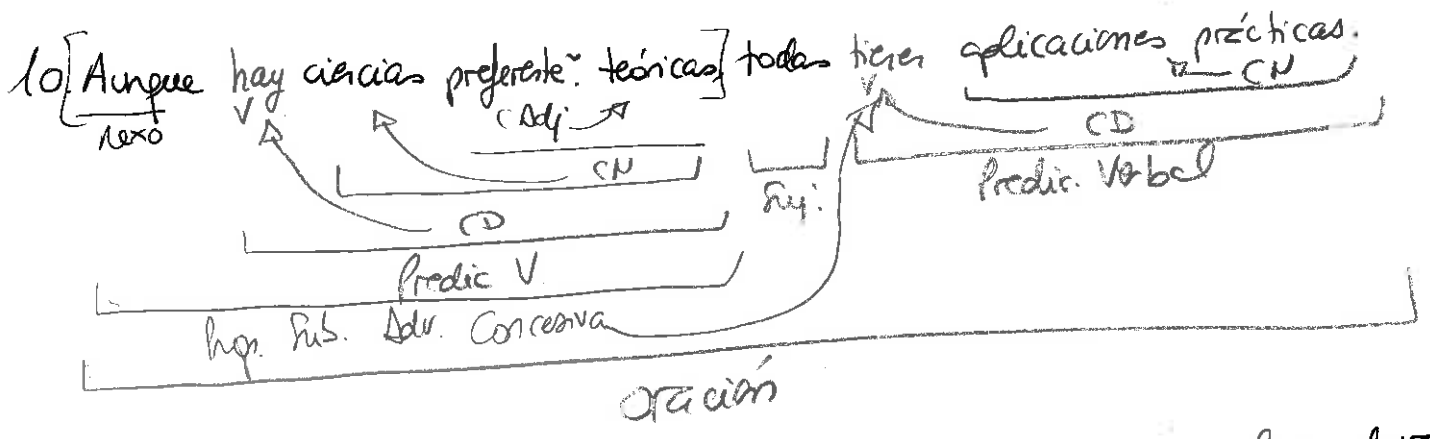 10[Aunque hay ciencias preferente~ teóricas] todas tienen aplicaciones prácticas.
nexo V CAdj V CN
CN Suj. CD
CD Predic. Verbal
Predic V.
Prop. Sub. Adv. Concesiva
oración